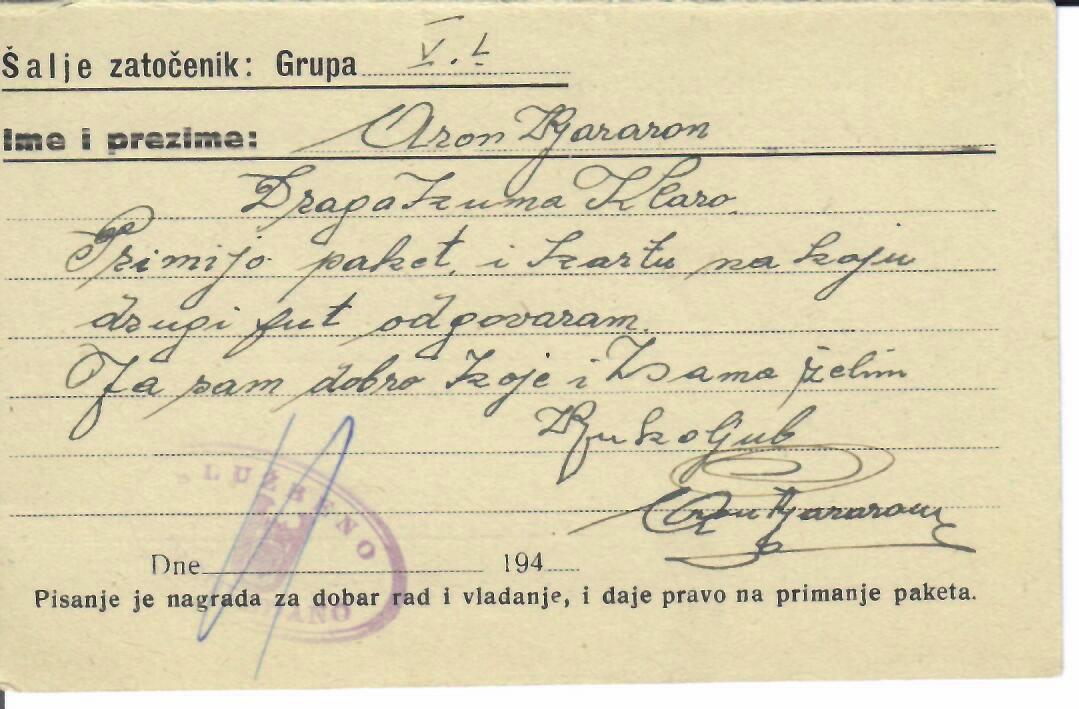 Šalje zatočenik: Grupa V. L
Ime i prezime: Aron
Draga Kuma Klaro
Primijo paket, i kartu na koju
drugi put odgovaram.
Ja sam dobro koje i Vama želim
Rukoljub
Aron
SLUŽBENO
Dne 194
Pisanje je nagrada za dobar rad i vladanje, i daje pravo na primanje paketa.